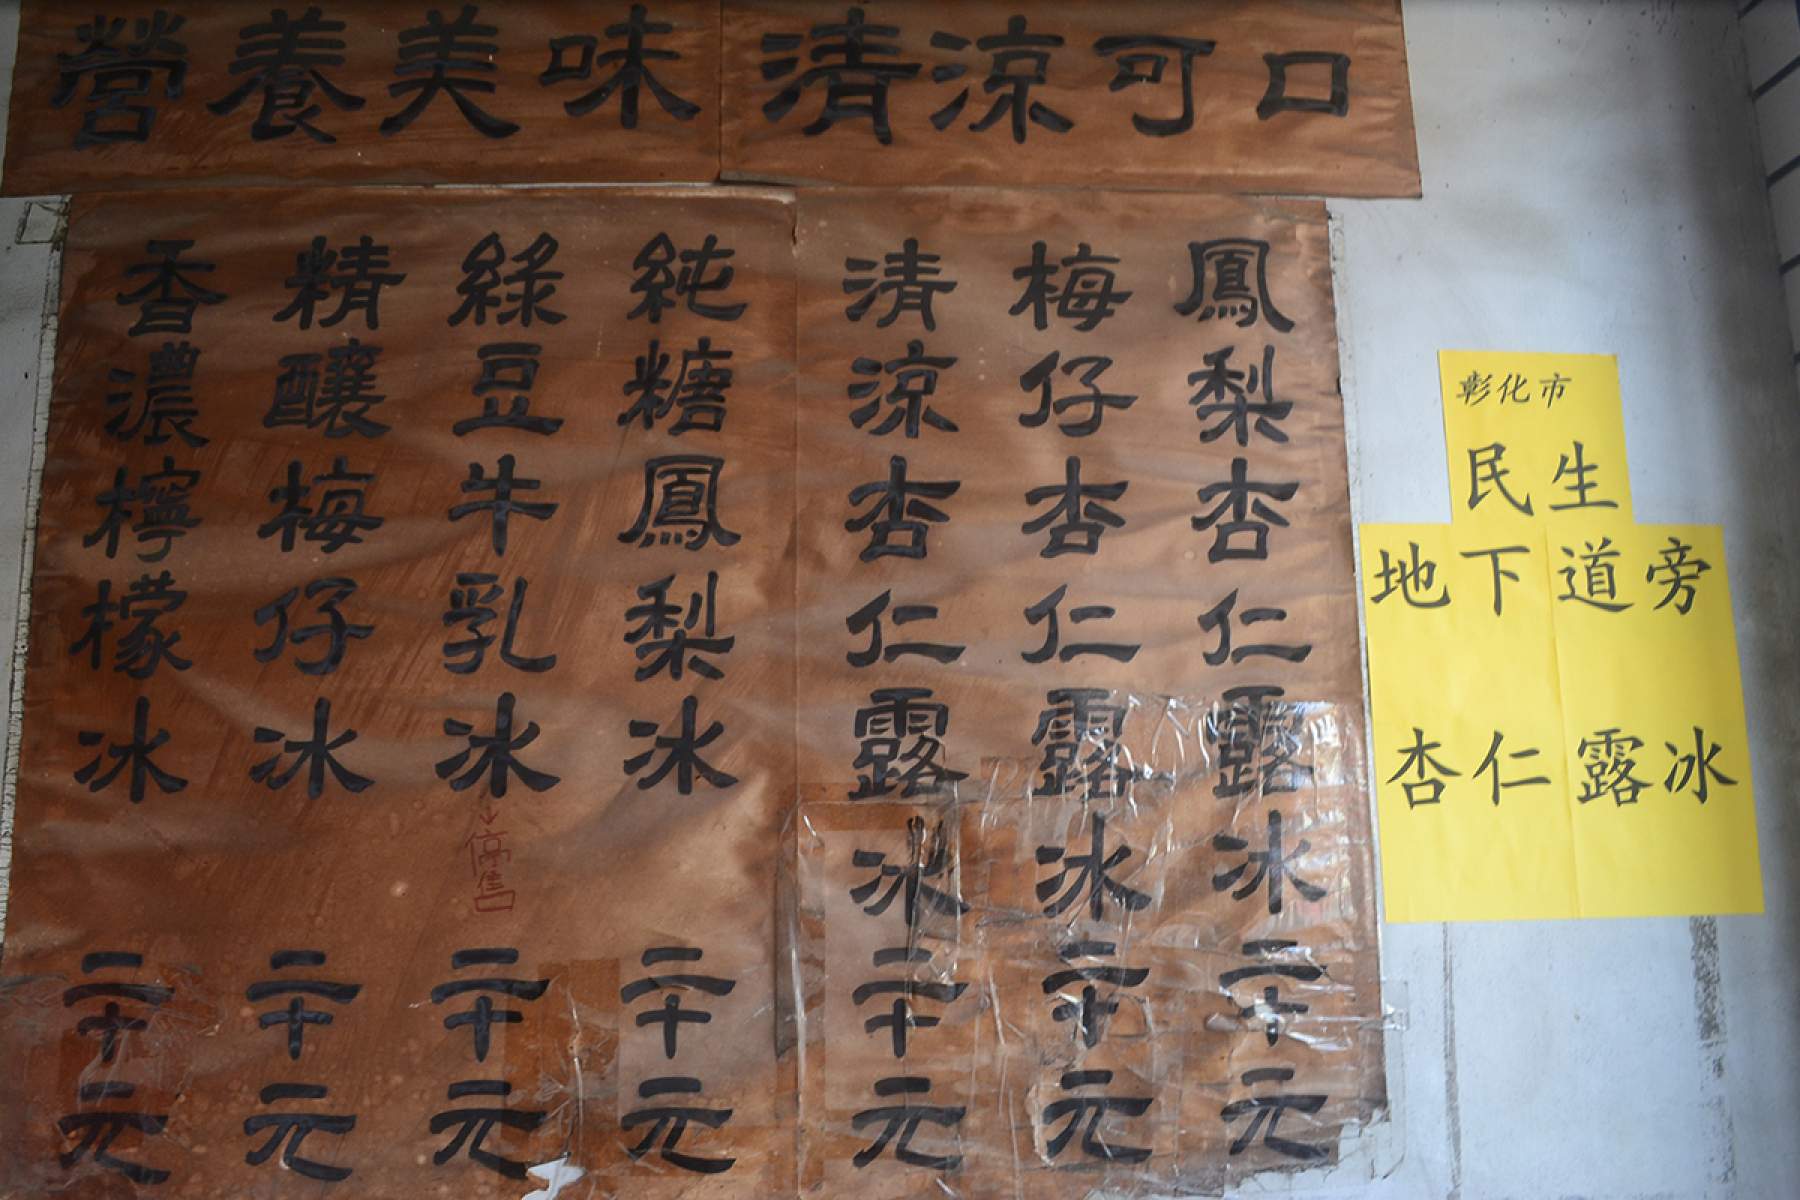 營養美味 清涼可口
鳳梨杏仁露冰 二十元
梅仔杏仁露冰 二十元
清涼杏仁露冰 二十元
純糖鳳梨冰 二十元
綠豆牛乳冰 二十元
→停售
精釀梅仔冰 二十元
香濃檸檬冰 二十元
彰化市
民生
地下道旁
杏仁露冰